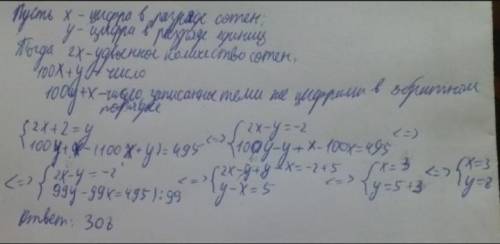 Пусть x - цифра в разряде сотен;
y - цифра в разряде единиц
Тогда 2x - удвоенное количество сотен,
100x+y - число
100y+x - число, записанное теми же цифрами в обратном
порядке
{2x+2=y 100y+x-(100x+y)=495 <=> {2x-y=-2 100y-y+x-100x=495 <=>
<=> {2x-y=-2 99y-99x=495|:99 <=> {2x-y+y-x=-2+5 y-x=5 <=> {x=3 y=5+3 <=> {x=3 y=8
Ответ: 308